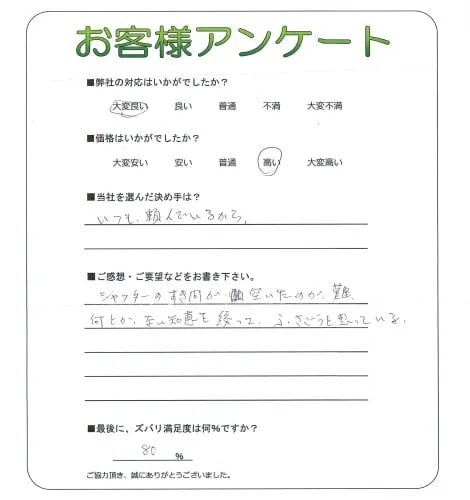 お客様アンケート
■弊社の対応はいかがでしたか?
大変良い 良い 普通 不満 大変不満
■価格はいかがでしたか?
大変安い 安い 普通 高い 大変高い
■当社を選んだ決め手は?
いつも、頼んでいるから。
■ご感想・ご要望などをお書き下さい。
シャッターのすき間が 空いたのが、難、
何とか、ない知恵を絞って、ふさごうと思っている。
■最後に、ズバリ満足度は何%ですか?
80 %
ご協力頂き、誠にありがとうございました。